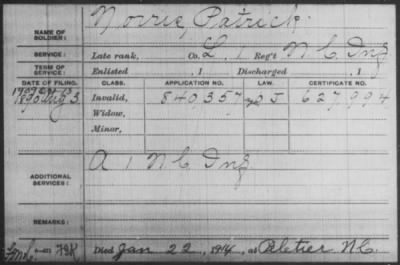 NAME OF SOLDIER: Norris, Patrick.
SERVICE: Late rank, Co. L. 1 Reg't N C Inf
TERM OF SERVICE: Enlisted , 1 Discharged , 1
DATE OF FILING. CLASS. APPLICATION NO. LAW. CERTIFICATE NO.
1890 3. Invalid, 840357 J 627994
Widow,
Minor,
ADDITIONAL SERVICES: A 1 N C Inf
REMARKS:
Died Jan 22, 1914, at Peletier N.C.